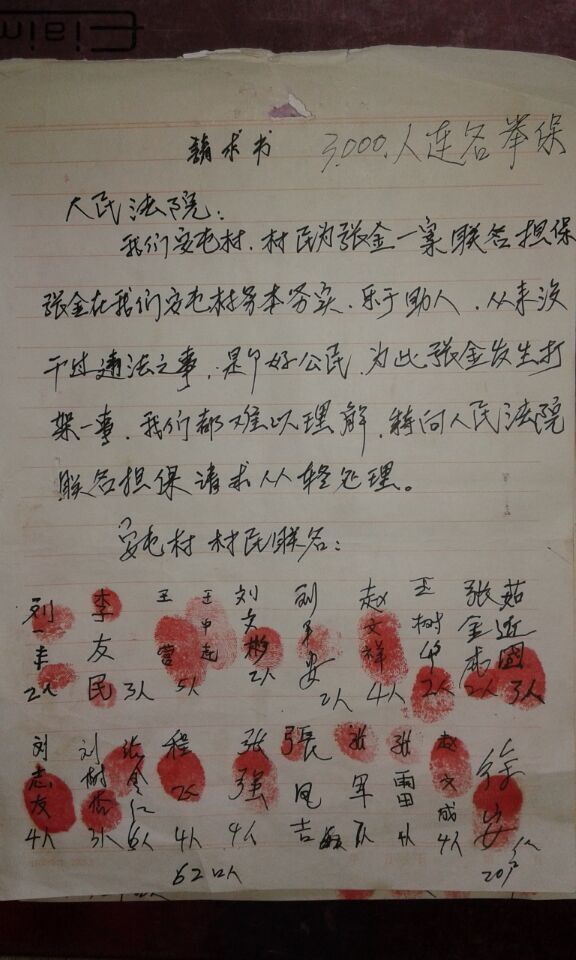 請求书 3,000.人连名举保
人民法院:
我们安屯村.村民为张金一案联名担保
张金在我们安屯村务本务实.乐于助人.从来没
干过违法之事,是个好公民,为此张金发生打
架一事,我们都难以理解,特向人民法院
联名担保请求从轻处理。
安屯村村民联名:
刘一丰 李友民 王营 王中起 刘文彬 刘平安 赵文祥 王树华 张金虎 茹近国
2人 3人 5人 2人 2人 4人 2人 2人 3人
刘志友 刘树杰 张金仁 程 张强 張凤吉 张军 张雨田 赵文成 徐安
4人 3人 6人 4人 4人 4人
62口人 20户